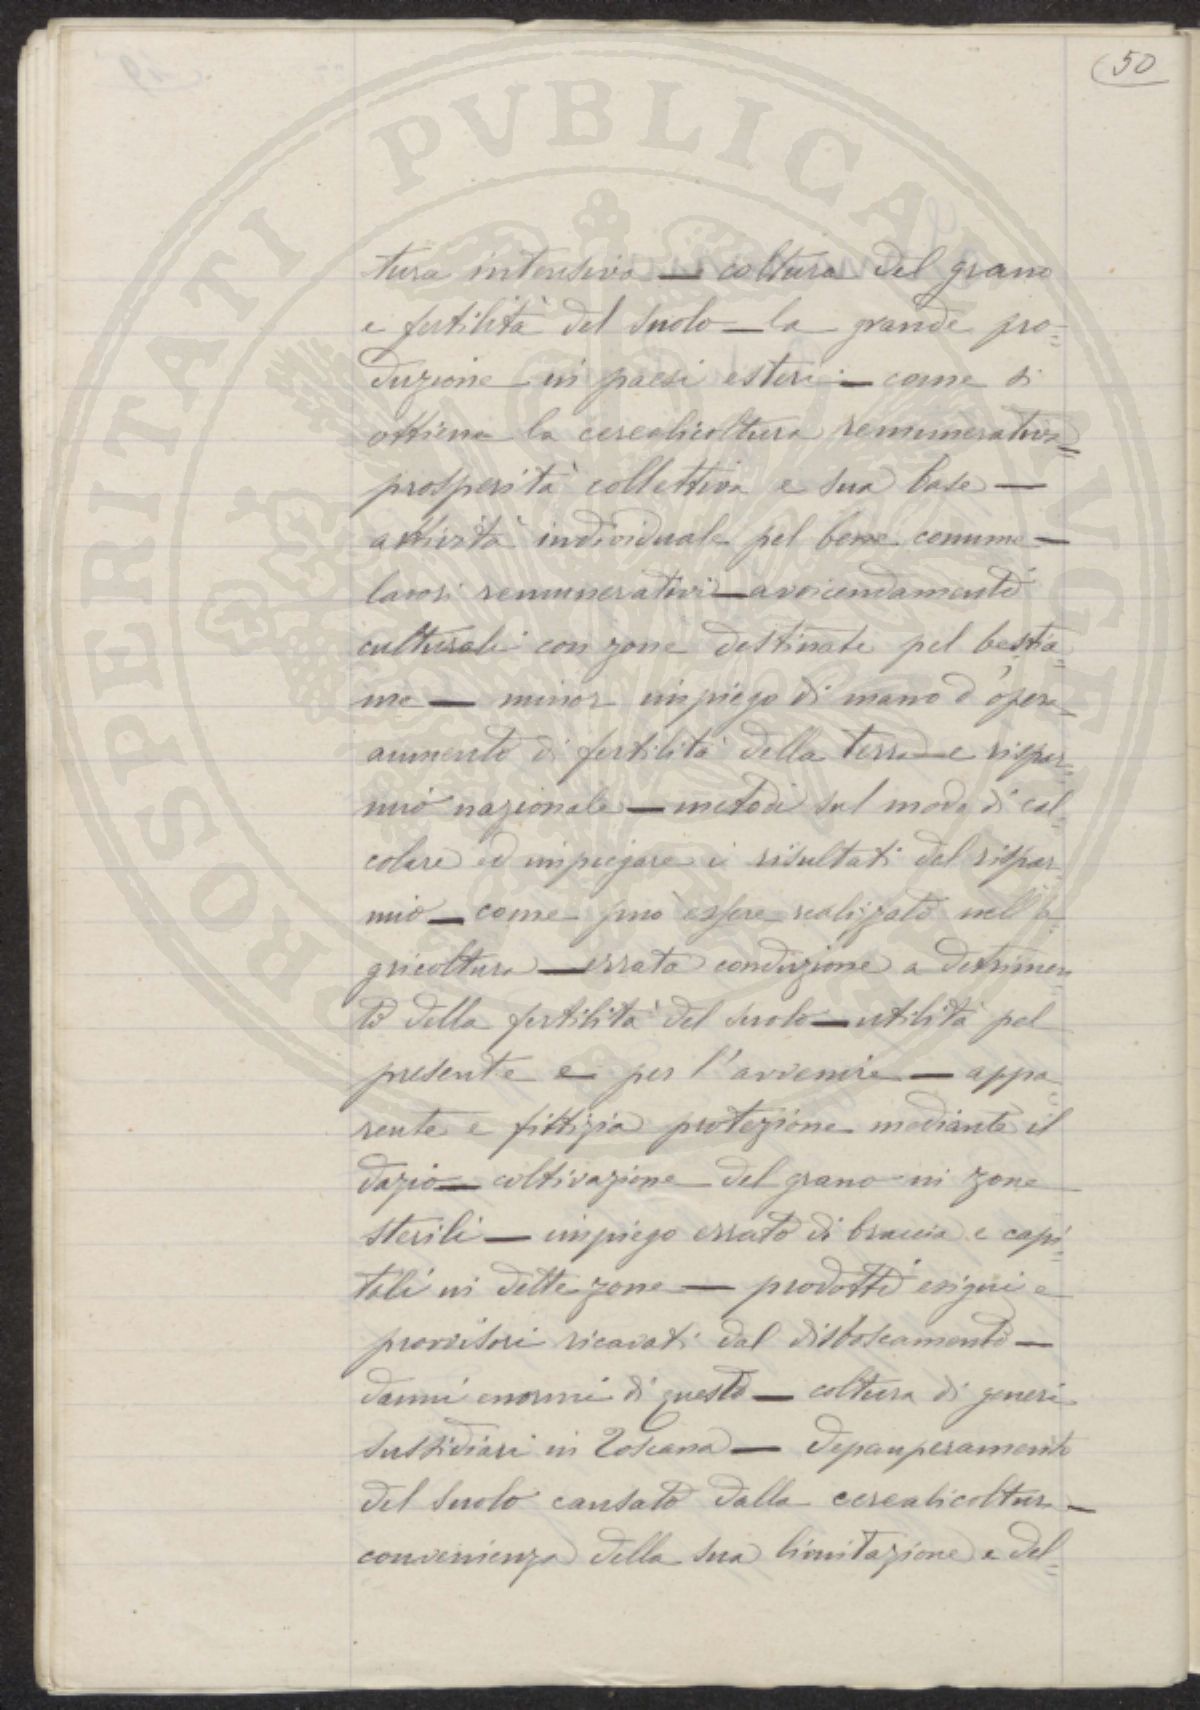 50
tura intensiva — coltura del grano
e fertilità del suolo — la grande pro=
duzione in paesi esteri — come si
ottiene la cerealicoltura remunerativa =
prosperità collettiva e sua base —
attività individuale pel bene comune —
lavori remunerativi — avvicendamento
culturali con zone destinate pel bestia=
me — minor impiego di mano d'opera —
aumento di fertilità della terra e rispar=
mio nazionale — metodi sul modo di cal=
colare ed impiegare i risultati del rispar=
mio — come può essere realizzato nell'a=
gricoltura — errata condizione a detrimen
to della fertilità del suolo — utilità pel
presente e per l'avvenire — appa=
rente e fittizia protezione mediante il
dazio — coltivazione del grano in zone
sterili — impiego errato di braccia e capi=
tali in dette zone — prodotti esigui e
provvisori ricavati dal disboscamento —
danni enormi di questo — coltura di generi
sussidiari in Toscana — depauperamento
del suolo causato dalla cerealicoltura —
convenienza della sua limitazione e del=
PROSPERITATI PVBLICAE AVGENDAE